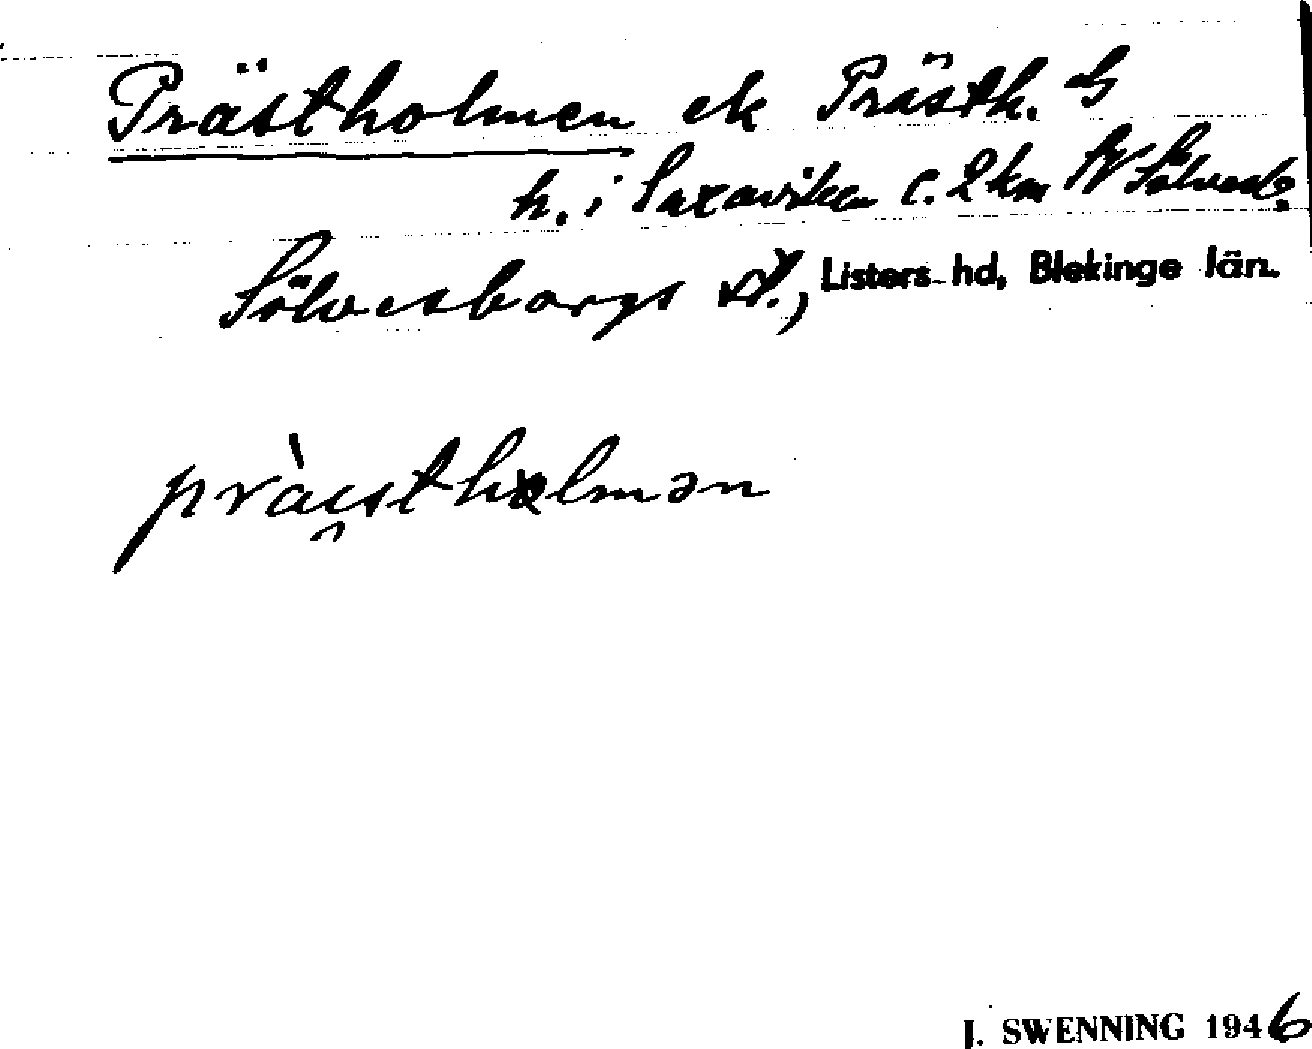 Prästholmen ek Prästh. G
h. i Saxaviken c. 2 km W Sölvesb.
Sölvesborgs st., Listers hd, Blekinge län.
prä̀sthɷlmən
J. SWENNING 1946